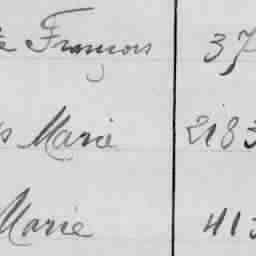 François 37
Marie 2183
Marie 413